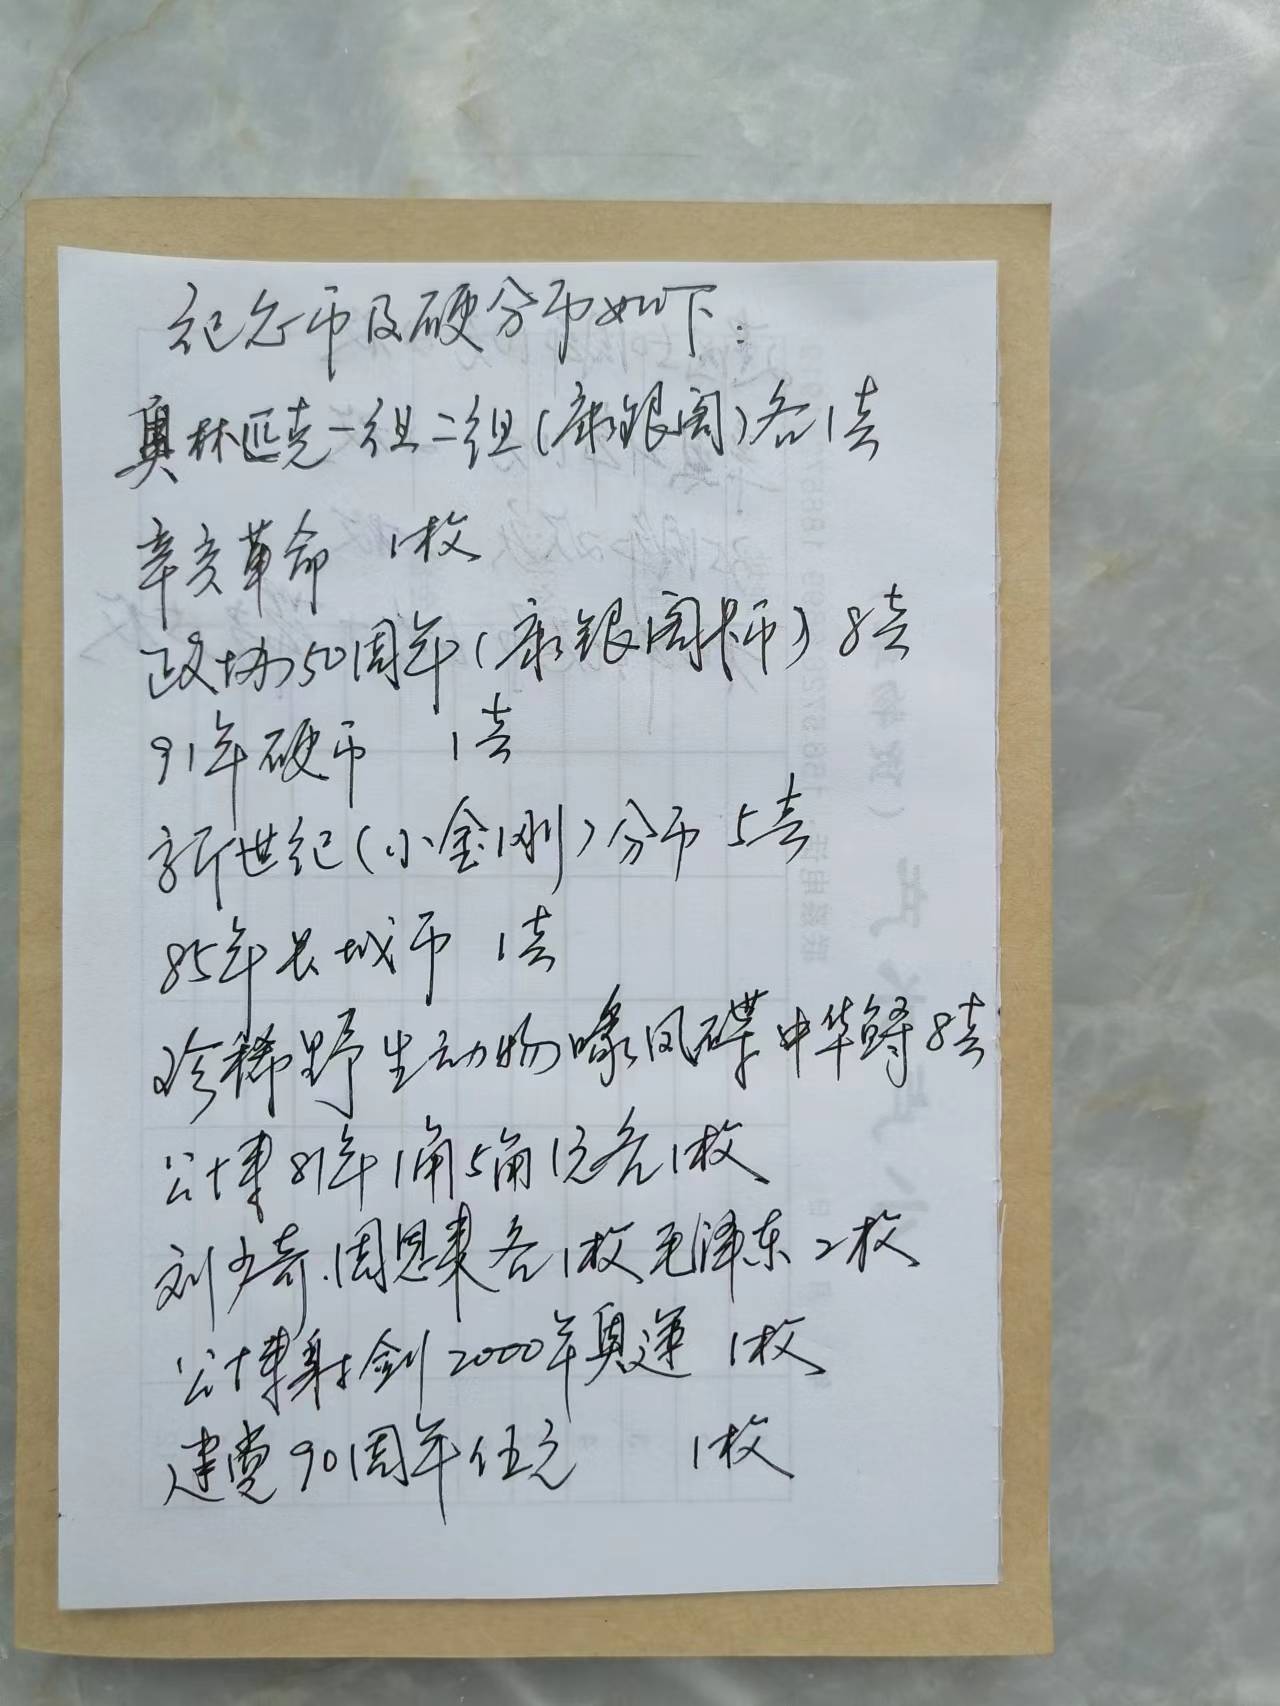 纪念币及硬分币如下:
奥林匹克一组二组(康银阁)各1套
辛亥革命 1枚
政协50周年(康银阁卡币)8套
91年硬币 1套
新世纪(小金刚)分币 5套
85年长城币 1套
珍稀野生动物喙凤碟中华鲟8套
公博81年1角5角1元各1枚
刘少奇.周恩来各1枚毛泽东2枚
公博射剑2000年奥运 1枚
建党90周年伍元 1枚